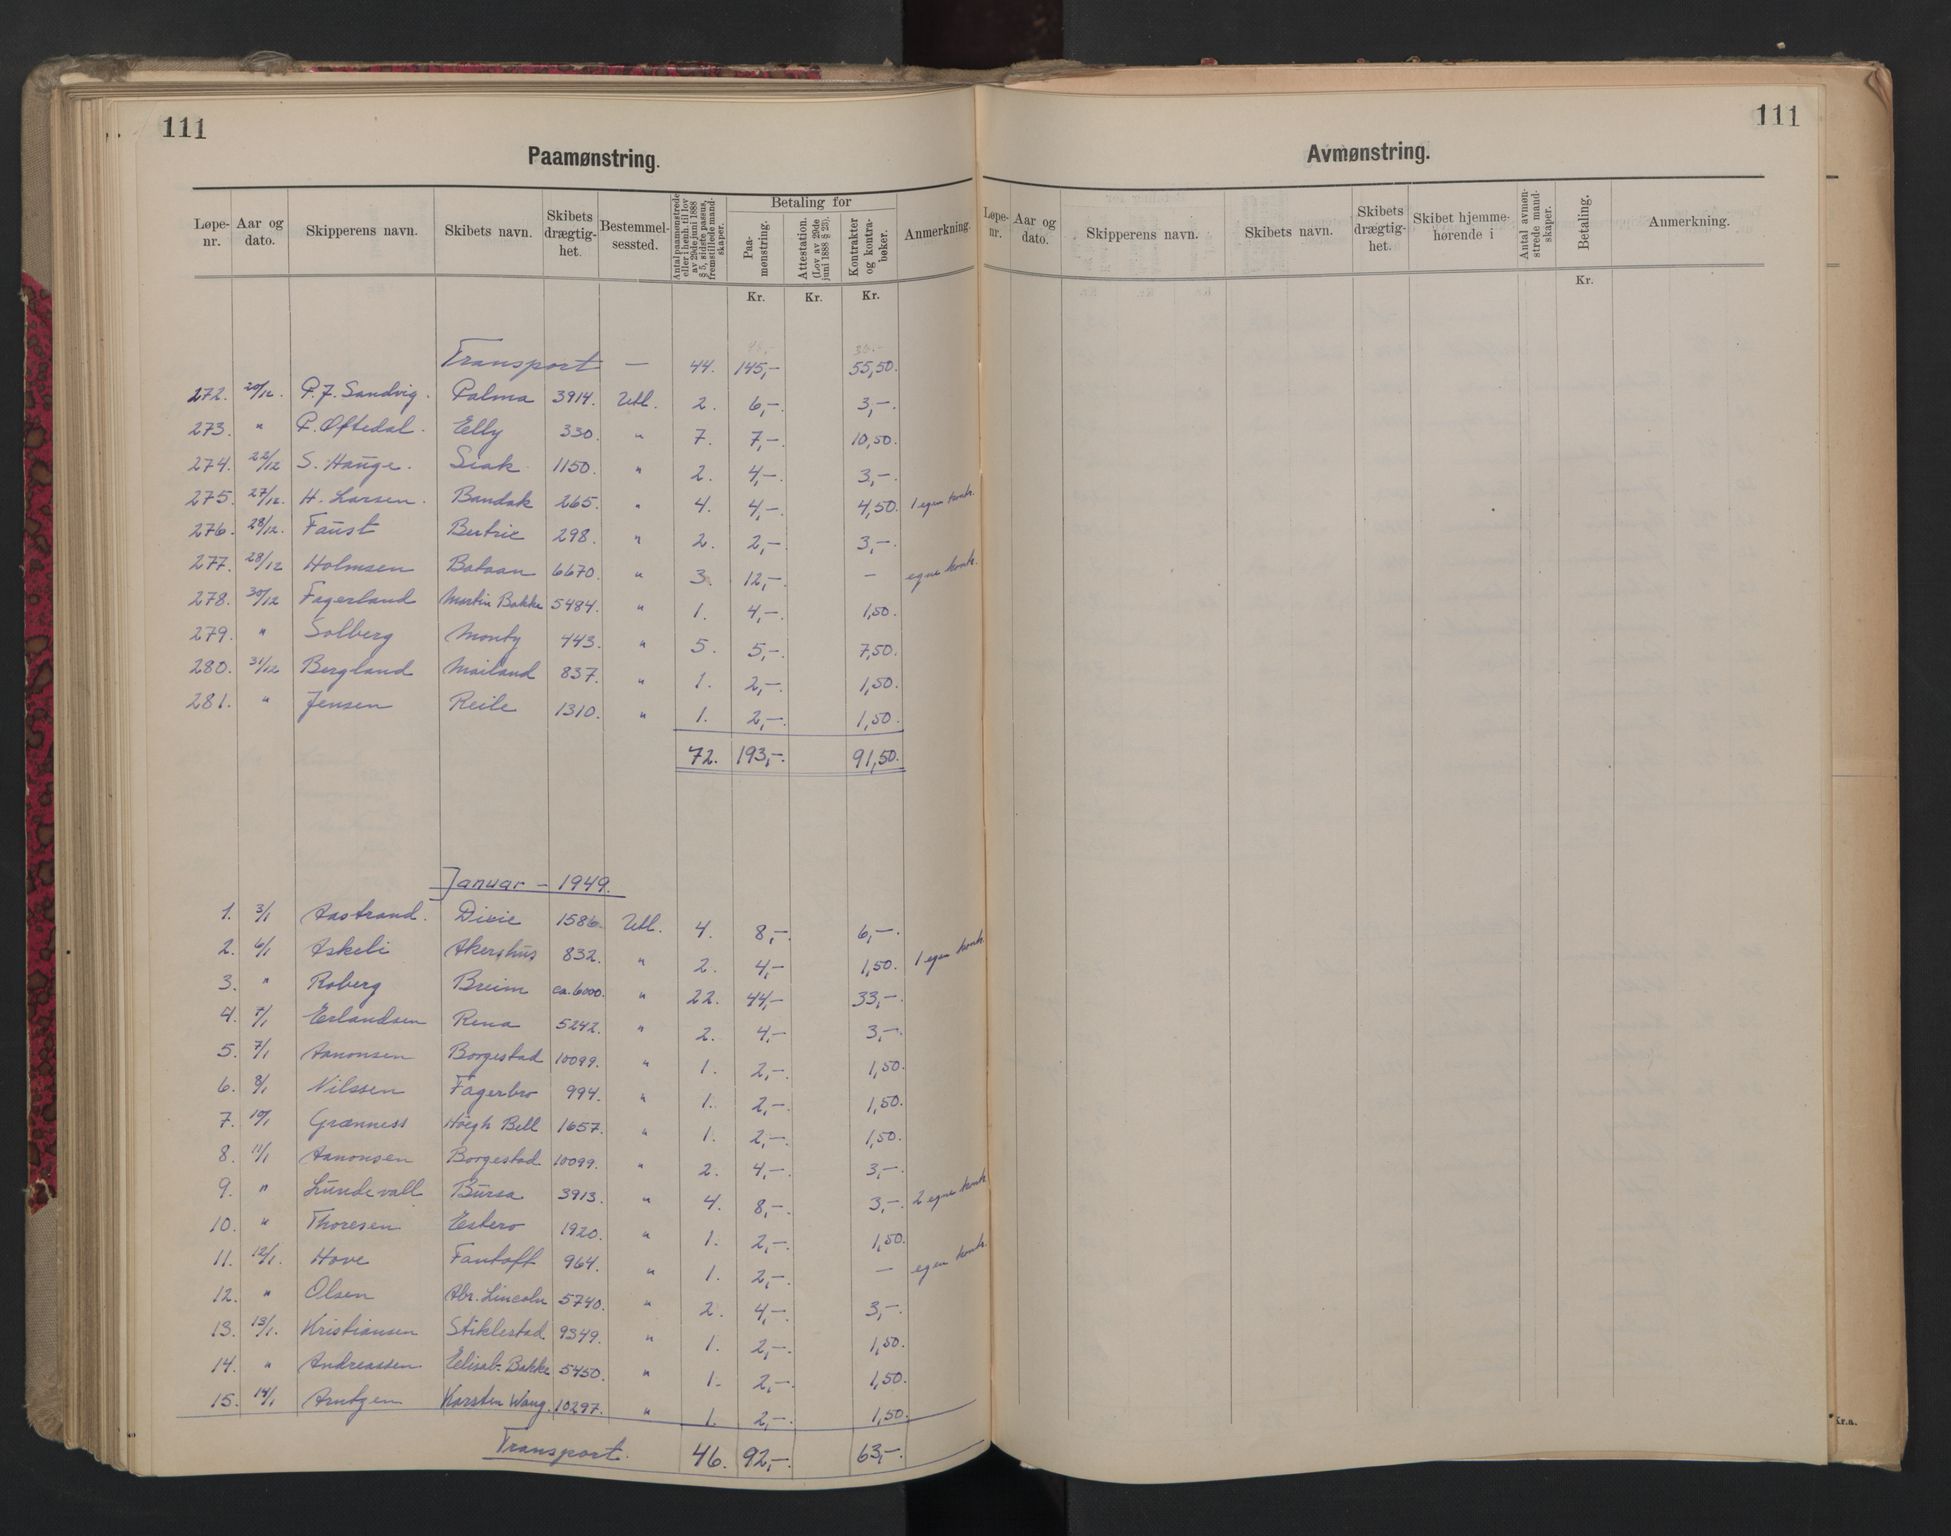 111
Paamønstring.
Løpe-nr. Aar og dato. Skipperens navn. Skibets navn. Skibets drægtig-het. Bestemmel-sessted. Antal paamønstrede eller i henh. til lov av 29de juni 1888 § 5, sidste passus, fremstillede mand-skaper. Betaling for Paa-mønstring. Attestation. (Lov av 29de juni 1888 § 25). Kontrakter og kontra-bøker. Anmerkning.
Kr. Kr. Kr.
Transport — 44. 145,- 55,50.
272. 20/12. P. J. Sandvig. Palma 3914. Utl. 2. 6,- 3,-
273. " P. Øftedal. Elly 330. " 7. 7,- 10,50.
274. 22/12 S. Hauge. Siak 1150. " 2. 4,- 3,-
275. 27/12. H. Larsen. Bandak 265. " 4. 4,- 4,50. 1 egen kontr.
276. 28/12. Faust 298. " 2. 2,- 3,-
277. 28/12 Holmsen Bataan 6670. " 3. 12,- — egne kontr.
278. 30/12 Fagerland Martin Bakke 5484. " 1. 4,- 1,50.
279. " Solberg Monty 443. " 5. 5,- 7,50.
280. 31/12 Bergland Mailand 837. " 1. 2,- 1,50.
281. " Jensen 1310. " 1. 2,- 1,50.
72. 193,- 91,50.
Januar - 1949.
1. 3/1 Aastrand. Dixie 1586. Utl. 4. 8,- 6,-
2. 6/1 Askeli Akershus 832. " 2. 4,- 1,50. 1 egen kontr.
3. " Roberg Breim ca. 6000. " 22. 44,- 33,-
4. 7/1 Erlandsen Rena 5242. " 2. 4,- 3,-
5. 7/1 Aanonsen Borgestad 10099. " 1. 2,- 1,50.
6. 8/1 Nilssen Fagerbro 994. " 1. 2,- 1,50.
7. 10/1 Grænness Høegh Bell 1657. " 1. 2,- 1,50.
8. 11/1 Aanonsen Borgestad. 10099. " 2. 4,- 3,-
9. " Lundevall Bursa 3913. " 4. 8,- 3,- 2 egne kontr.
10. " Thoresen Estero 1920. " 1. 2,- 1,50.
11. 12/1. Hove Fantoft 964. " 1. 2,- — egen kontr.
12. " Olsen Abr. Lincoln 5740. " 2. 4,- 3,-
13. 13/1. Kristiansen Stiklestad 9349. " 1. 2,- 1,50.
14. " Andreassen Elisab. Bakke 5450. " 1. 2,- 1,50.
15. 14/1 Arntzen Karsten Wang. 10297. " 1. 2,- 1,50.
Transport. 46. 92,- 63,-
111
Avmønstring.
Løpe-nr. Aar og dato. Skipperens navn. Skibets navn. Skibets drægtig-het. Skibet hjemme-hørende i Antal avmøn-strede mand-skaper. Betaling. Anmerkning.
Kr.
Kr.a.